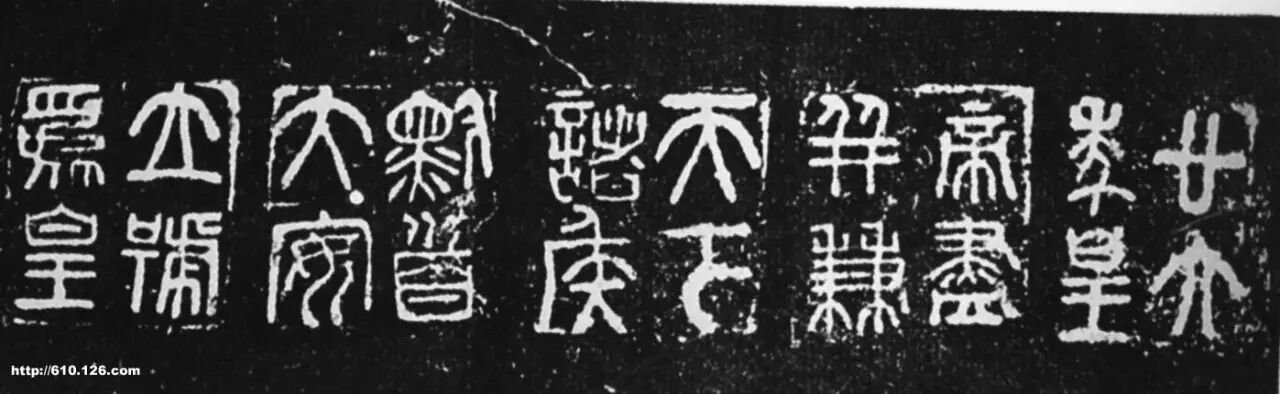 廿六
年皇
帝盡
并兼
天下
諸侯
黔首
大安
立號
為皇
http://610.126.com